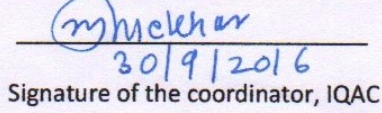 30/9/2016
Signature of the coordinator, IQAC